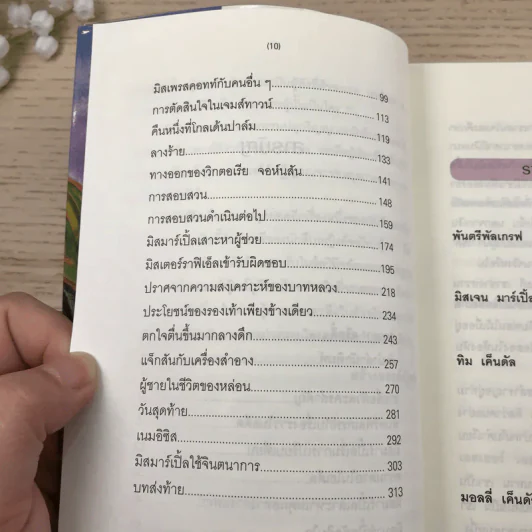 (10)
มิสเพรสคอทท์กับคนอื่น ๆ 99
การตัดสินใจในเจมส์ทาวน์ 113
คืนหนึ่งที่โกลเด้นปาล์ม 119
ลางร้าย 133
ทางออกของวิกตอเรีย จอห์นสัน 141
การสอบสวน 148
การสอบสวนดำเนินต่อไป 159
มิสมาร์เปิ้ลเสาะหาผู้ช่วย 174
มิสเตอร์ราฟีเอ็ลเข้ารับผิดชอบ 195
ปราศจากความสงเคราะห์ของบาทหลวง 218
ประโยชน์ของรองเท้าเพียงข้างเดียว 234
ตกใจตื่นขึ้นมากลางดึก 243
แจ็กสันกับเครื่องสำอาง 257
ผู้ชายในชีวิตของหล่อน 270
วันสุดท้าย 281
เนมอิซิส 292
มิสมาร์เปิ้ลใช้จินตนาการ 303
บทส่งท้าย 313
พันตรีพัลเกรฟ
มิสเจน มาร์เปิ้ล
ทิม เค็นดัล
มอลลี่ เค็นดั